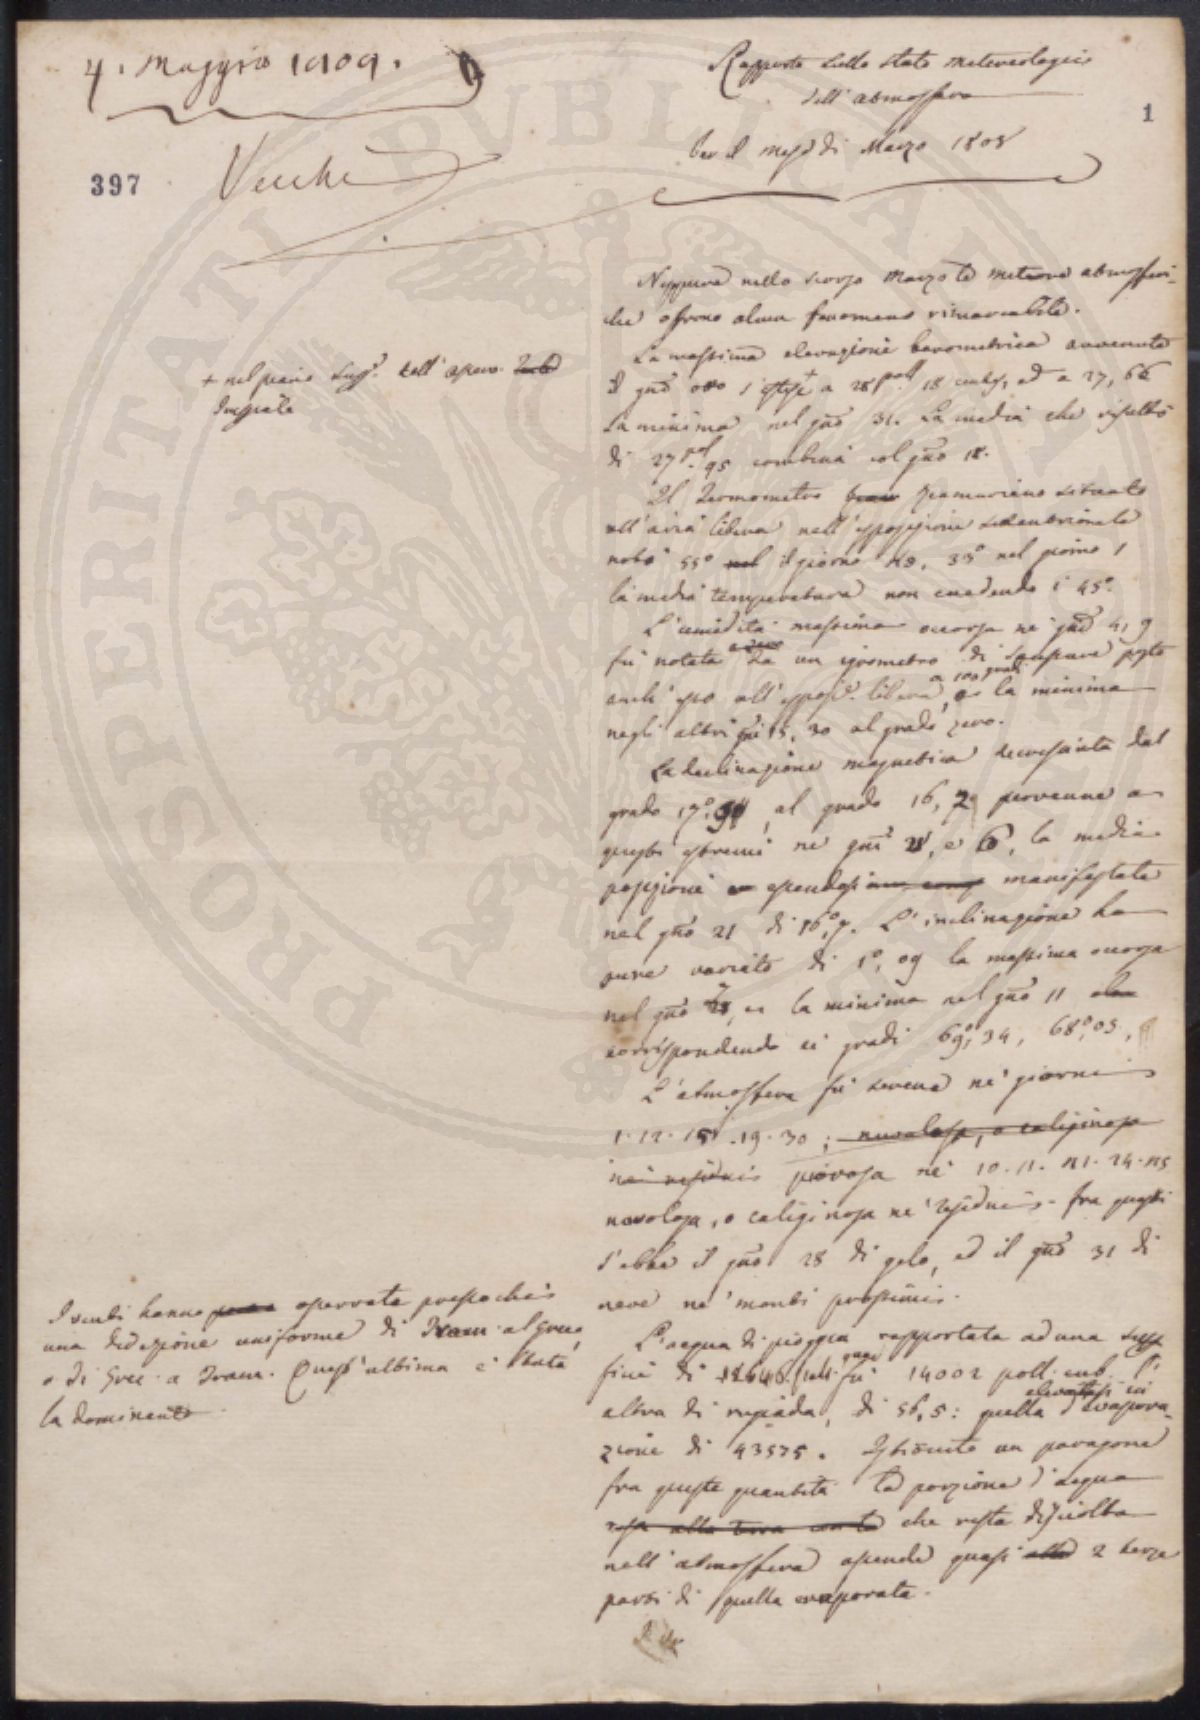 4. Maggio 1809.
Rapporto sullo stato meteorologico
dell'atmosfera
per il mese di Marzo 1808
1
397
Vecchi
Neppure nello scorso Marzo le meteore atmosferi-
che ofrono alcun fenomeno rimarcabile.
La massima elevazione barometrica avvenuta
il gno otto s'estese + a 28 poll. 18 centes, ed a 27, 66
la minima nel gno 31. La media che risultò
di 27 pol. 95 combina col gno 18.
+ nel piano dell' osserv.
Il Termometro Reamuriano situato
all'aria libera nell'esposizione settentrionale
notò 55° nel il giorno 33° nel giorno 1
la media temperatura non eccedendo i 45°.
L'umidità massima occorsa ne' gni 4, 9
fu notata da un igrometro di Saupure posto
anch'esso all'esposiz. libera, a 100 gradi la minima
negli altri gni 15, 30 al grado zero.
La declinazione magnetica decresciuta dal
grado 17°, al grado 16, pervenne a
questi estremi ne' gni 28, e 6, la media
posizione essendosi manifestata
nel gno 21 di 16°,7. L'inclinazione ha
pure variato di 1°, 09 la massima occorsa
nel gno, e la minima nel gno 11
corrispondendo ai gradi 69°,34, 68°,05,
L'atmosfera fu serena ne' giorni
1. 12. 15. 19. 30; nuvolosa, o caliginosa
ne' residui piovosa ne' 10. 11. 21. 24. 25
nuvolosa, o caliginosa ne' residui. fra questi
s'ebbe il gno 28 di gelo, ed il gno 31 di
neve ne' monti prossimi.
I venti hanno osservato pressochè
una direzione uniforme di Tram. al Greco,
o di Grec. a Tram. Quest'ultima è stata
la dominante
L'acqua di pioggia rapportata ad una super
ficie di fu 14002 poll. cub. l'
altra di rugiada, di 56,5: quella elevatasi in evapora-
zione di 43575. Istituito un paragone
fra queste quantità la porzione d'acqua
che resta disciolta
nell'atmosfera ascende quasi alle 2 terze
parti di quella evaporata.